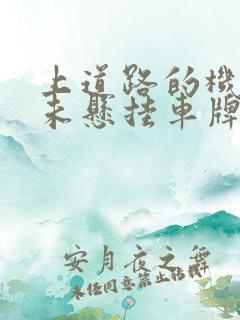 上道路的機
未懸挂車牌
安月夜之舞
未任同意禁止转载